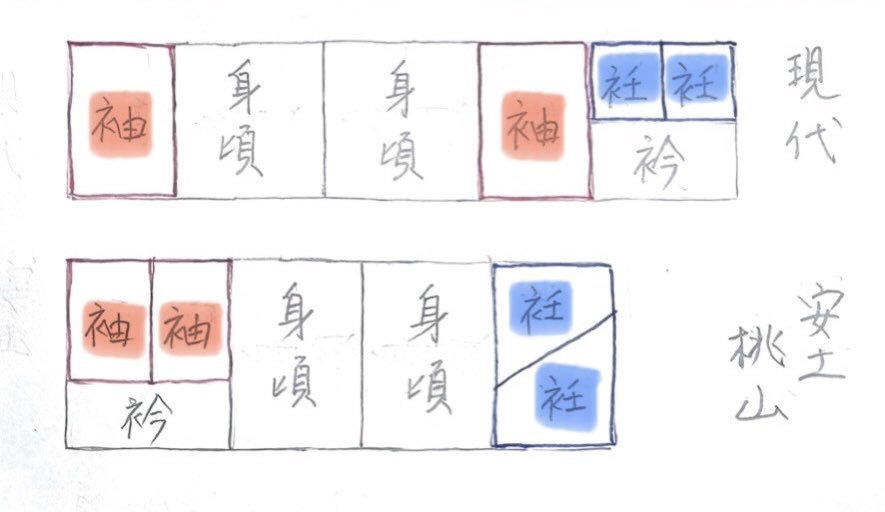 袖
身頃
身頃
袖
衽
衽
衿
現代
袖
袖
衿
身頃
身頃
衽
衽
安土
桃山